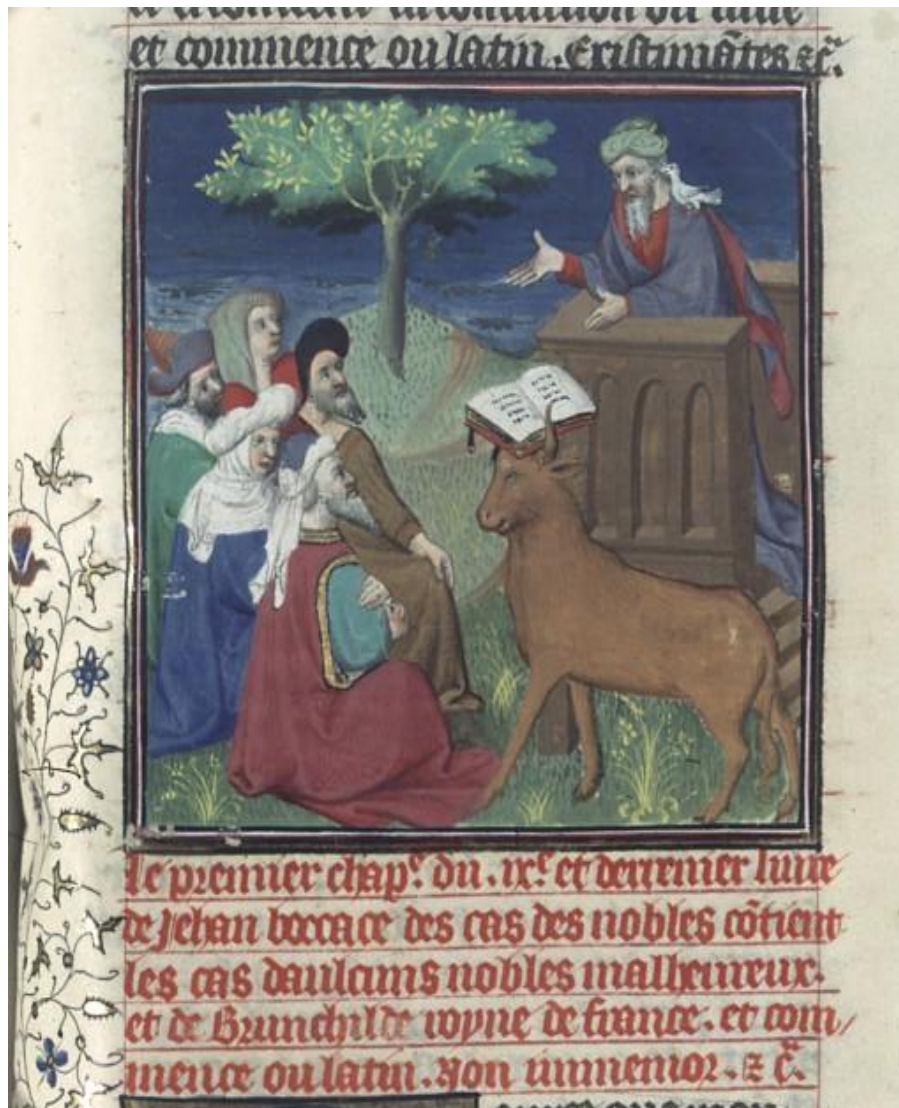 et commence ou latin. Existimātes ⁊c̃.
Le premier chapᵉ. du .ixᵉ. et derrenier liure
de Jehan boccace des cas des nobles cōtient
les cas daulcuns nobles malheureux.
et de Brunchilde royne de france. et com/
mence ou latin. Non immemor. ⁊ c̃.